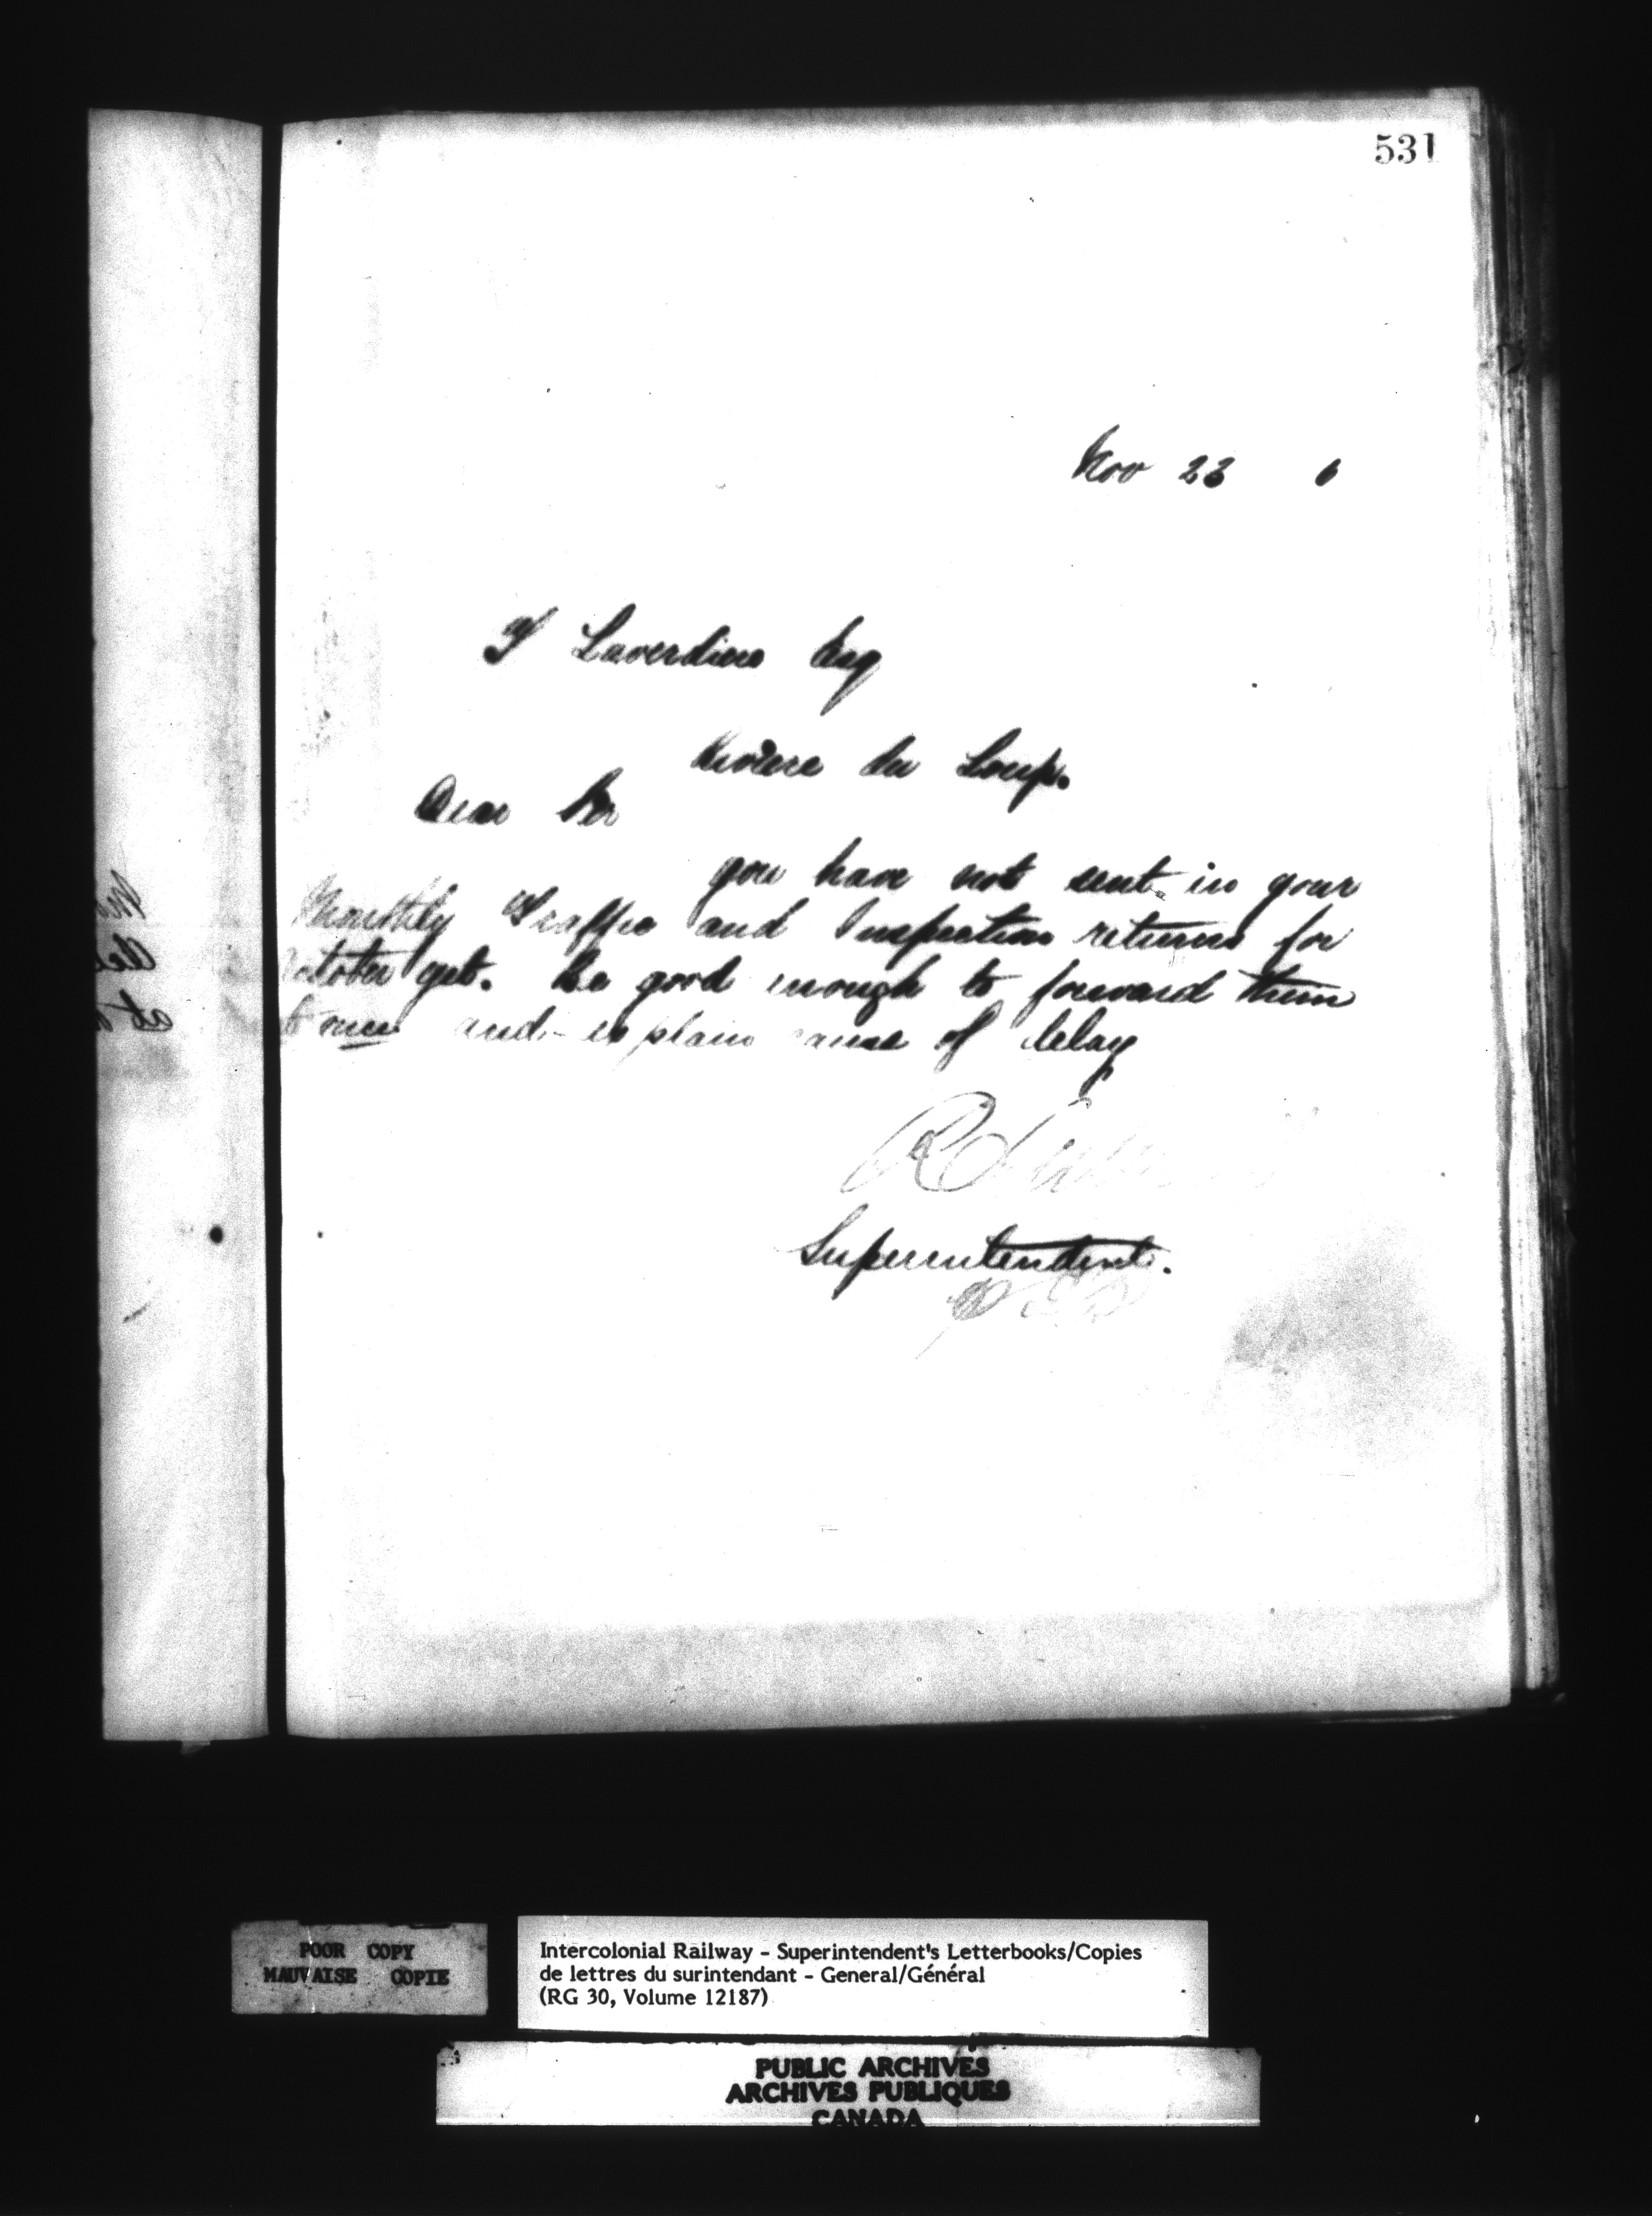 531
Nov 23 6
T Laverdiere Esq
Riviere du Loup.
Dear Sir
you have not sent in your
Monthly Traffic and Inspection returns for
October yet. Be good enough to forward them
at once and explain cause of delay
Superintendent.
POOR COPY
MAUVAISE COPIE
Intercolonial Railway - Superintendent's Letterbooks/Copies
de lettres du surintendant - General/Général
(RG 30, Volume 12187)
PUBLIC ARCHIVES
ARCHIVES PUBLIQUES
CANADA